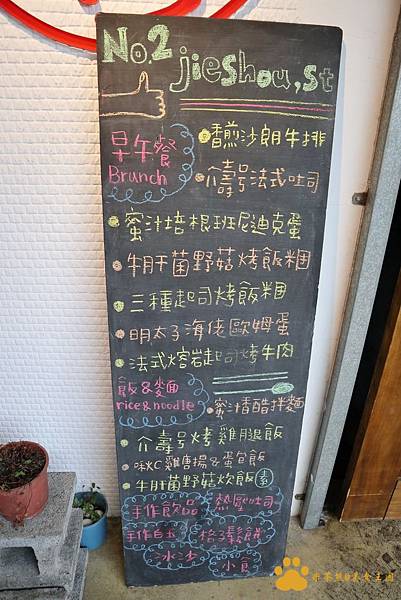 No.2
jieshou,st
早午餐
Brunch
香煎沙朗牛排
介壽号法式吐司
蜜汁培根班尼迪克蛋
牛肝菌野菇烤飯糰
三種起司烤飯糰
明太子海佬歐姆蛋
法式熔岩起司烤牛肉
飯&麵
rice&noodle
蜜香酷拌麵
介壽号烤雞腿飯
啾C雞唐揚&蛋包飯
牛肝菌野菇炊飯
手作飲品
熱壓吐司
手作白玉
格子鬆餅
冰沙
小食